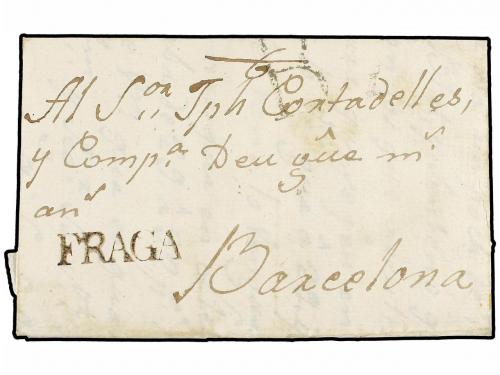 Al S.ᵒʳ Jph Cortadelles,
y Comp.ª Deu gûe mˢ
anˢ
FRAGA
Barcelona